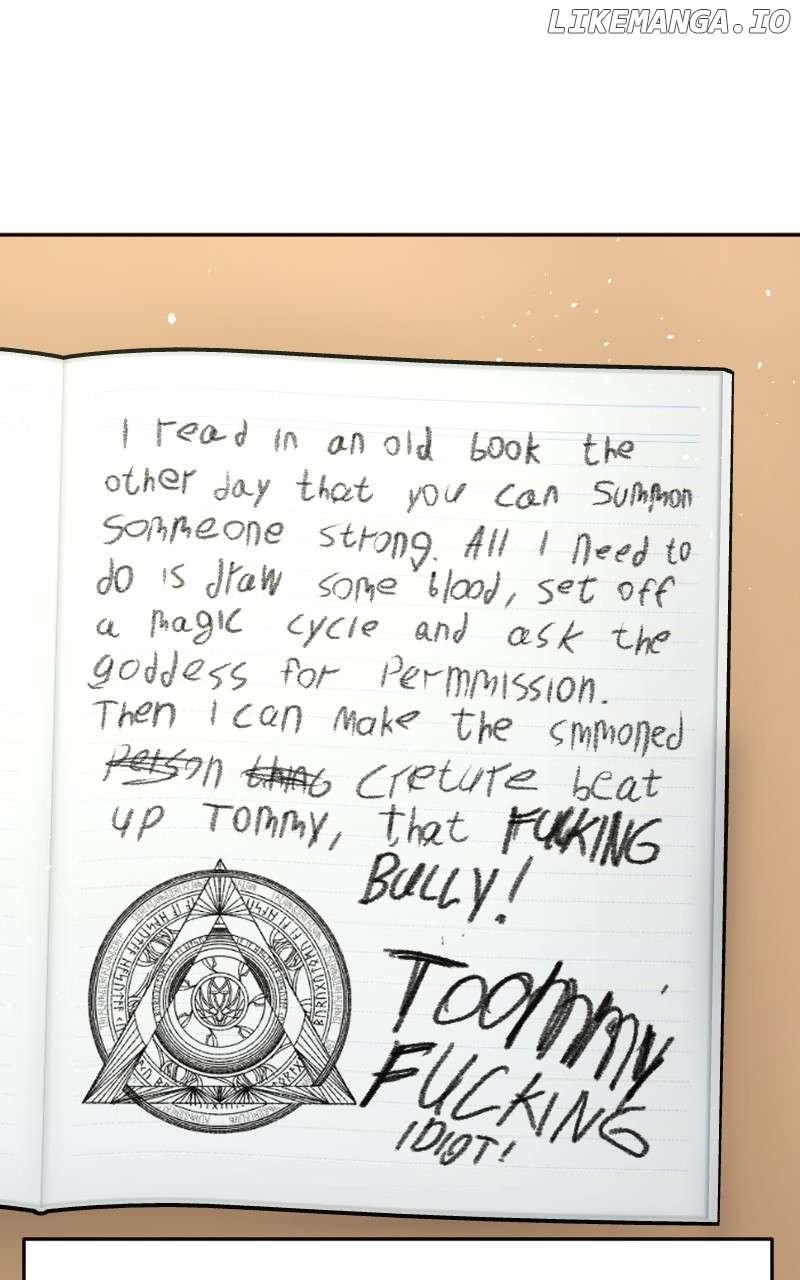 LIKEMANGA.IO
I read in an old book the
other day that you can summon
sommeone strong. All I need to
do is draw some blood, set off
a magic cycle and ask the
goddess for Permmission.
Then I can make the smmoned
person thing creture beat
up Tommy, that FUCKING
BULLY!
Toommmy
FUCKING
IDIOT!